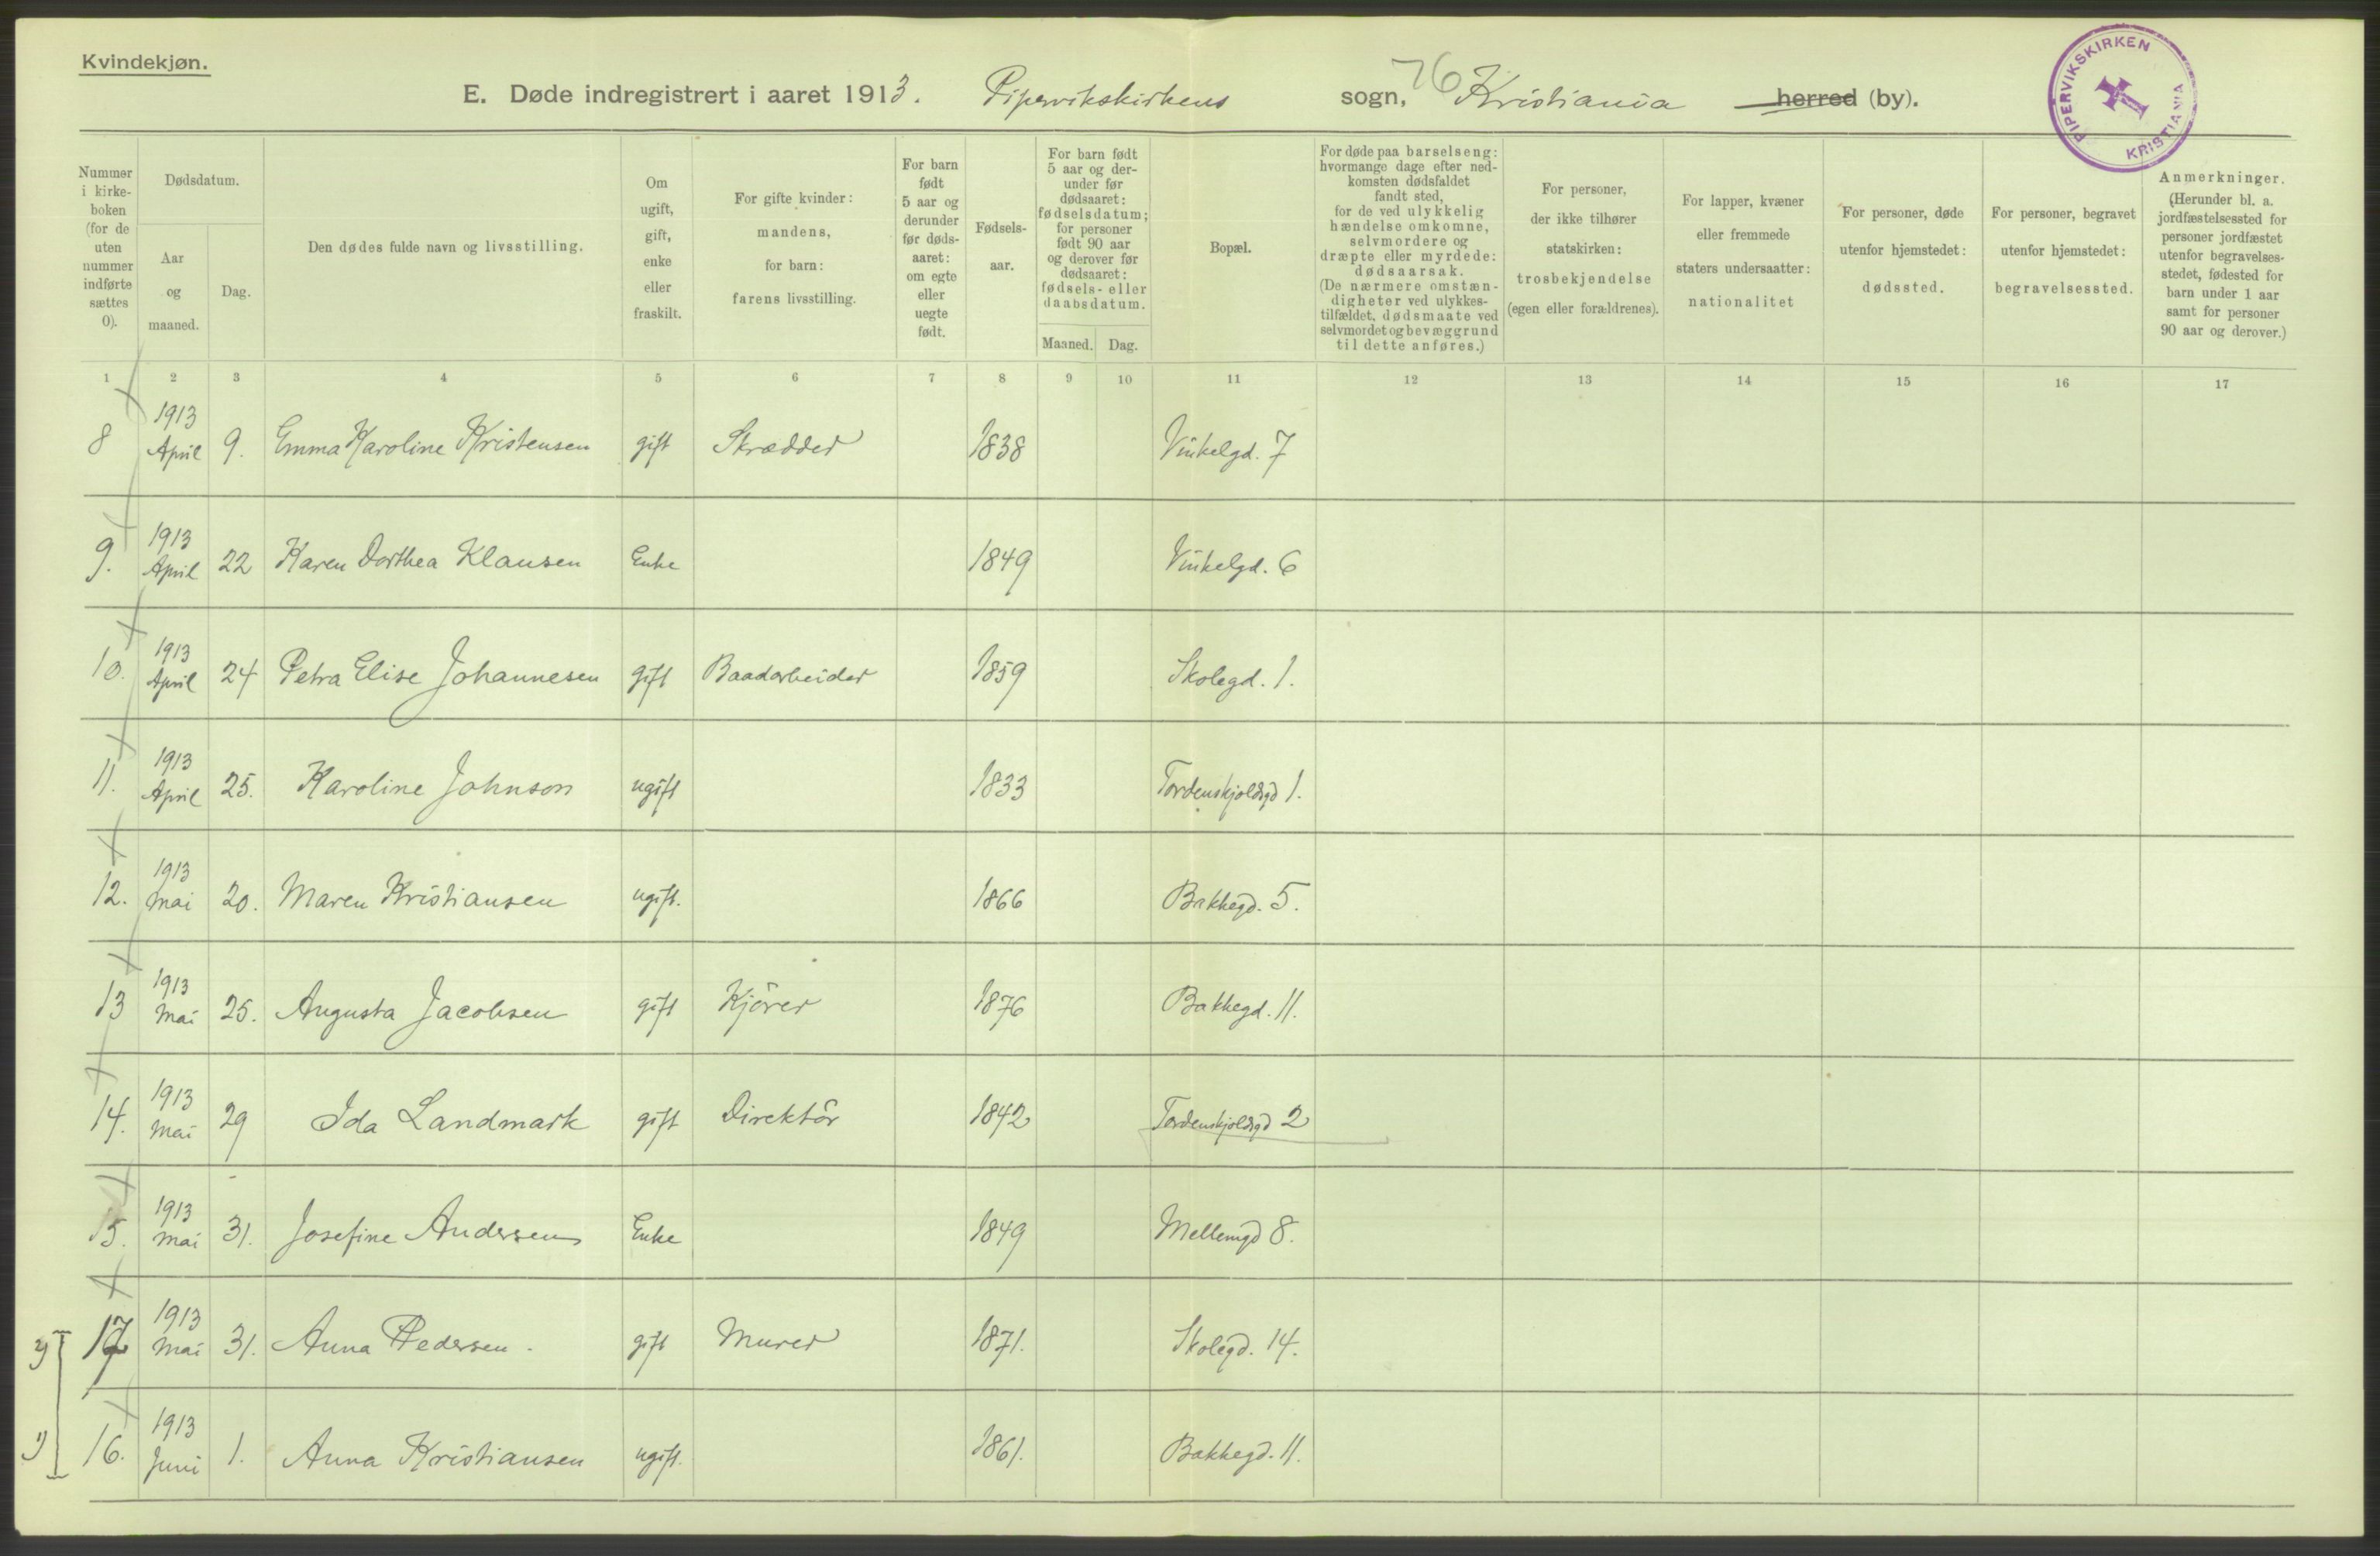 Kvindekjøn.
E. Døde indregistrert i aaret 1913. Pipervikskirkens sogn, 76 Kristiania herred (by).
PIPERVIKSKIRKEN KRISTIANIA
Nummer i kirke-boken (for de uten nummer indførte sættes 0).
Dødsdatum.
Aar og maaned.
Dag.
Den dødes fulde navn og livsstilling.
Om ugift, gift, enke eller fraskilt.
For gifte kvinder: mandens, for barn: farens livsstilling.
For barn født 5 aar og derunder før døds-aaret: om egte eller uegte født.
Fødsels-aar.
For barn født 5 aar og der-under før dødsaaret: fødselsdatum; for personer født 90 aar og derover før dødsaaret: fødsels- eller daabsdatum.
Maaned. Dag.
Bopæl.
For døde paa barselseng: hvormange dage efter ned-komsten dødsfaldet fandt sted, for de ved ulykkelig hændelse omkomne, selvmordere og dræpte eller myrdede: dødsaarsak. (De nærmere omstæn-digheter ved ulykkes-tilfældet, dødsmaate ved selvmordet og bevæggrund til dette anføres.)
For personer, der ikke tilhører statskirken: trosbekjendelse (egen eller forældrenes).
For lapper, kvæner eller fremmede staters undersaatter: nationalitet
For personer, døde utenfor hjemstedet: dødssted.
For personer, begravet utenfor hjemstedet: begravelsessted.
Anmerkninger. (Herunder bl. a. jordfæstelsessted for personer jordfæstet utenfor begravelses-stedet, fødested for barn under 1 aar samt for personer 90 aar og derover.)
1 2 3 4 5 6 7 8 9 10 11 12 13 14 15 16 17
8 1913 April 9. Emma Karoline Kristensen gift Skrædder 1838 Vinkelgd. 7
9. 1913 April 22 Karen Dorthea Klausen Enke 1849 Vinkelgd. 6
10. 1913 April 24 Petra Elise Johannesen gift Baadarbeider 1859 Skolegd. 1.
11. 1913 April 25. Karoline Johnson ugift 1833 Tordenskjoldsgd 1.
12. 1913 Mai 20. Maren Kristiansen ugift. 1866 Bakkegd. 5.
13 1913 Mai 25. Augusta Jacobsen gift Kjörer 1876 Bakkegd. 11.
14. 1913 Mai 29 Ida Landmark gift Direktör 1842 Tordenskjoldsgd 2
15. 1913 Mai 31. Josefine Andersen Enke 1849 Mellemgd 8.
17 1913 Mai 31. Anna Pedersen. gift Murer 1871. Skolegd. 14.
16. 1913 Juni 1. Anna Kristiansen ugift. 1861. Bakkegd. 11.